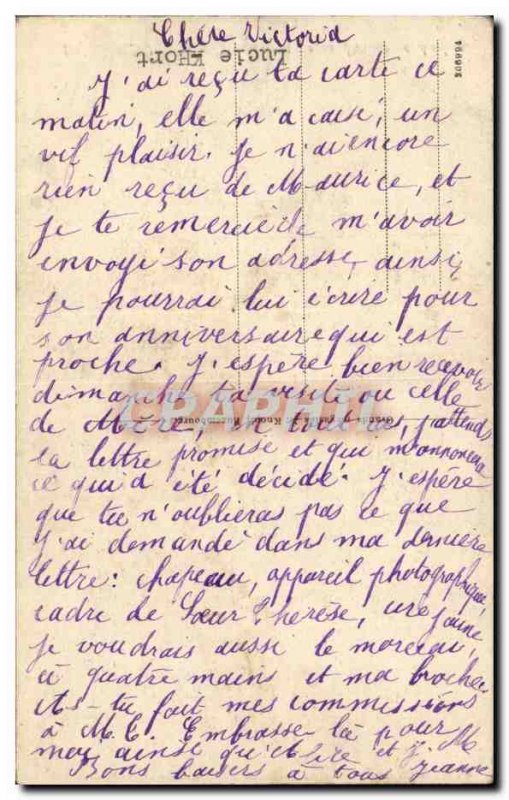 Chère Victoria
Lucie KHort
306994
J'ai reçu ta carte ce
matin, elle m'a causé, un
vif plaisir. Je n'ai encore
rien reçu de Maurice, et
je te remercie de m'avoir
envoyé son adresse, ainsi,
je pourrai lui écrire pour
son anniversaire qui est
proche. J'espère bien recevoir
dimanche ta visite ou celle
de Mère, en tout cas, j'attends
la lettre promise et qui m'annoncera
ce qui'd été décidé. J'espère
que tu n'oublieras pas ce que
j'ai demandé dans ma dernière
lettre: chapeau, appareil photographique
cadre de Sœur Thérèse, cire jaune,
je voudrais aussi le morceau,
à quatre mains et ma broche.
As-tu fait mes commissions
à M.C. Embrasse là pour
moi ainsi qu'
Bons baisers à tous Jeanne
CPAPHIL